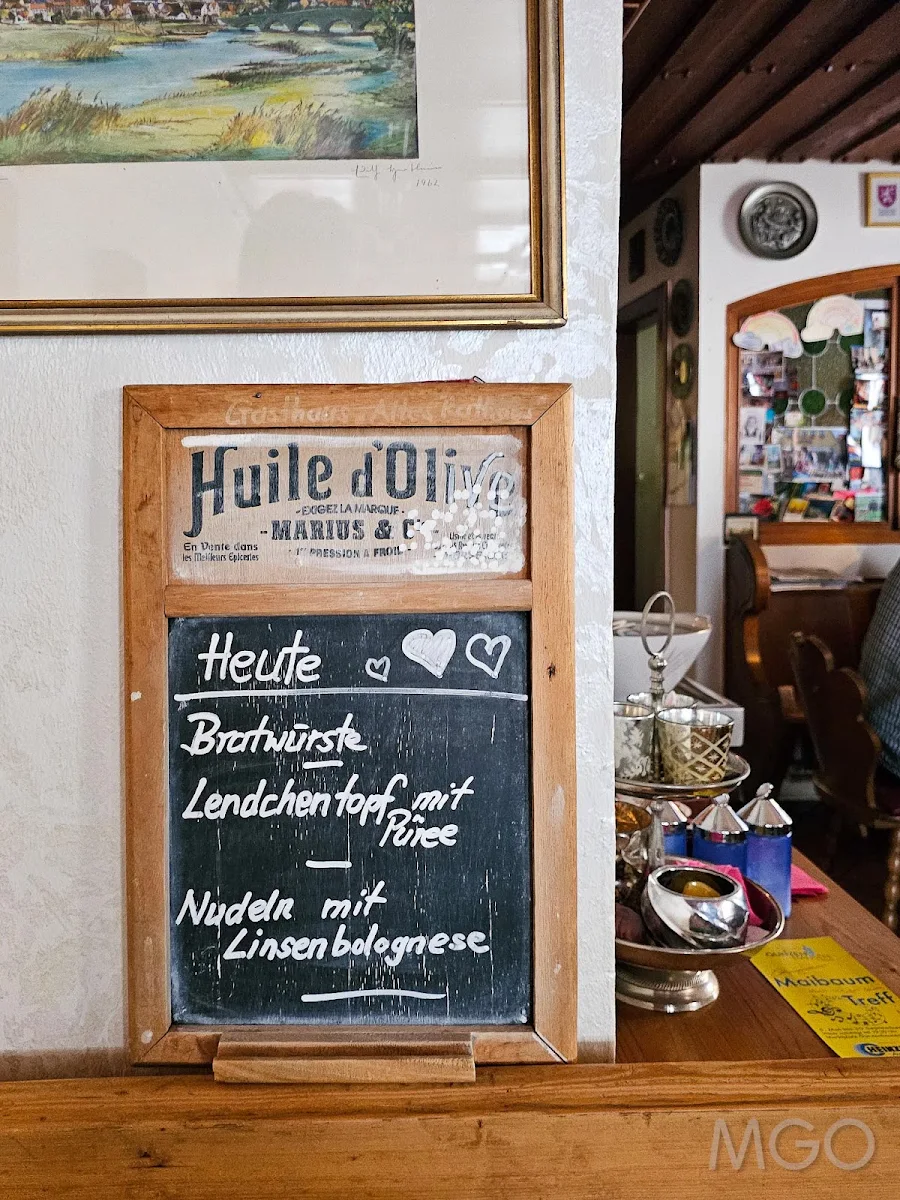 1962
Gasthaus Altes Rathaus
Huile d'Olive
-EXIGEZ LA MARQUE-
-MARIUS & C
En Vente dans
les Meilleurs Epiceries
PRESSION A FROID
Heute
Bratwürste
Lendchentopf mit
Püree
Nudeln mit
Linsenbolognese
Maibaum
Treff
MGO